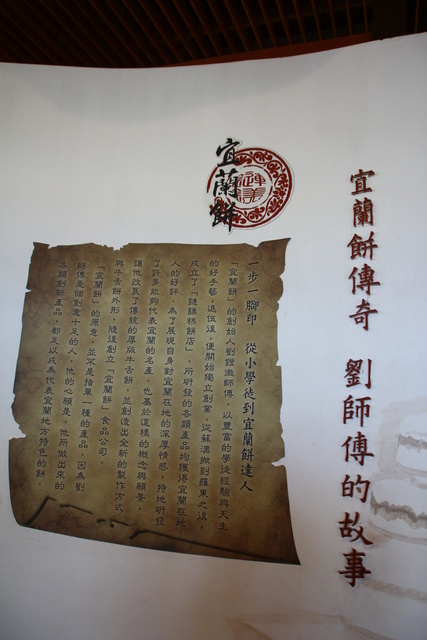 宜蘭餅傳奇 劉師傅的故事
宜蘭餅
一步一腳印 從小學徒到宜蘭餅達人
「宜蘭餅」的創始人劉鐙澂師傅，以豐富的學徒經驗與天生
的好手藝，退伍後，便開始獨立創業，從蘇澳搬到羅東之後，
成立了「謎謎糕餅店」，所研發的各類產品均獲得宜蘭在地
人的好評，為了展現自身對宜蘭在地的深厚情感，特地研發
了許多能夠代表宜蘭的名產，也基於這樣的概念與願景，
讓他改良了傳統的厚版牛舌餅，並創造出全新的製作方式
與牛舌餅外形，隨後創立「宜蘭餅」食品公司。
「宜蘭餅」的原意，並不是指單一種的產品，因為劉
師傅是個創意十足的人，他的心願是，他所做出來的
各類創新產品，都足以成為代表宜蘭地方特色的餅。